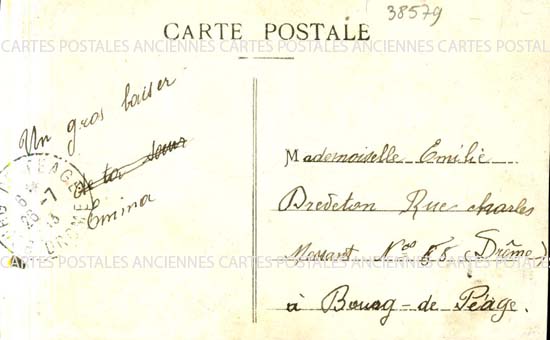 38579
CARTE POSTALE
CARTES POSTALES ANCIENNES CARTES POSTALES ANCIENNES CARTES POSTALES
Un gros baiser
de ta sœur
Emina
PÉAGE
26-7
13
DRÔME
Mademoiselle Emilie
Bredeton Rue charles
Mossant Nos 55 (Drôme)
à Bourg-de Péage.
CARTES POSTALES ANCIENNES CARTES POSTALES ANCIENNES CARTES POSTALES